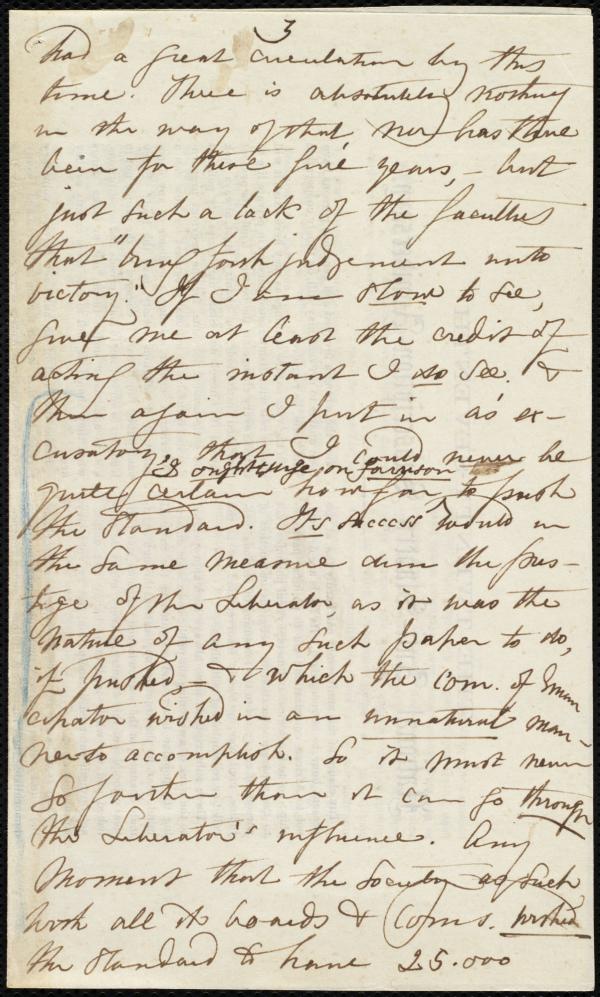 3
had a great circulation by this
time. There is absolutely nothing
in the way of that, nor has there
been for these five years, – but
just such a lack of the faculties
that "bring forth judgement unto
victory." If I am slow to see,
give me at least the credit of
acting the instant I do see. &
then again I put in as ex-
cusatory, that I could never be
quite certain how far, I ought, urge on Garrison to push
the Standard. Its success would in
the same measure dim the pres-
tige of the Liberator, as it was the
nature of any such paper to do,
if pushed – & which the com. of Eman
cipator wished in an unnatural man-
ner to accomplish. So it must never
go farther than it can go through
the Liberator's influence. Any
moment that the Society as such
with all its boards & Coms. wished
the Standard to have 25.000